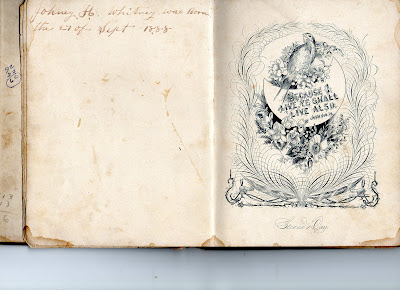 Johney H. Whitney was born
the 21 of Sept 1888
BECAUSE I
LIVE YE SHALL
LIVE ALSO.
JOHN